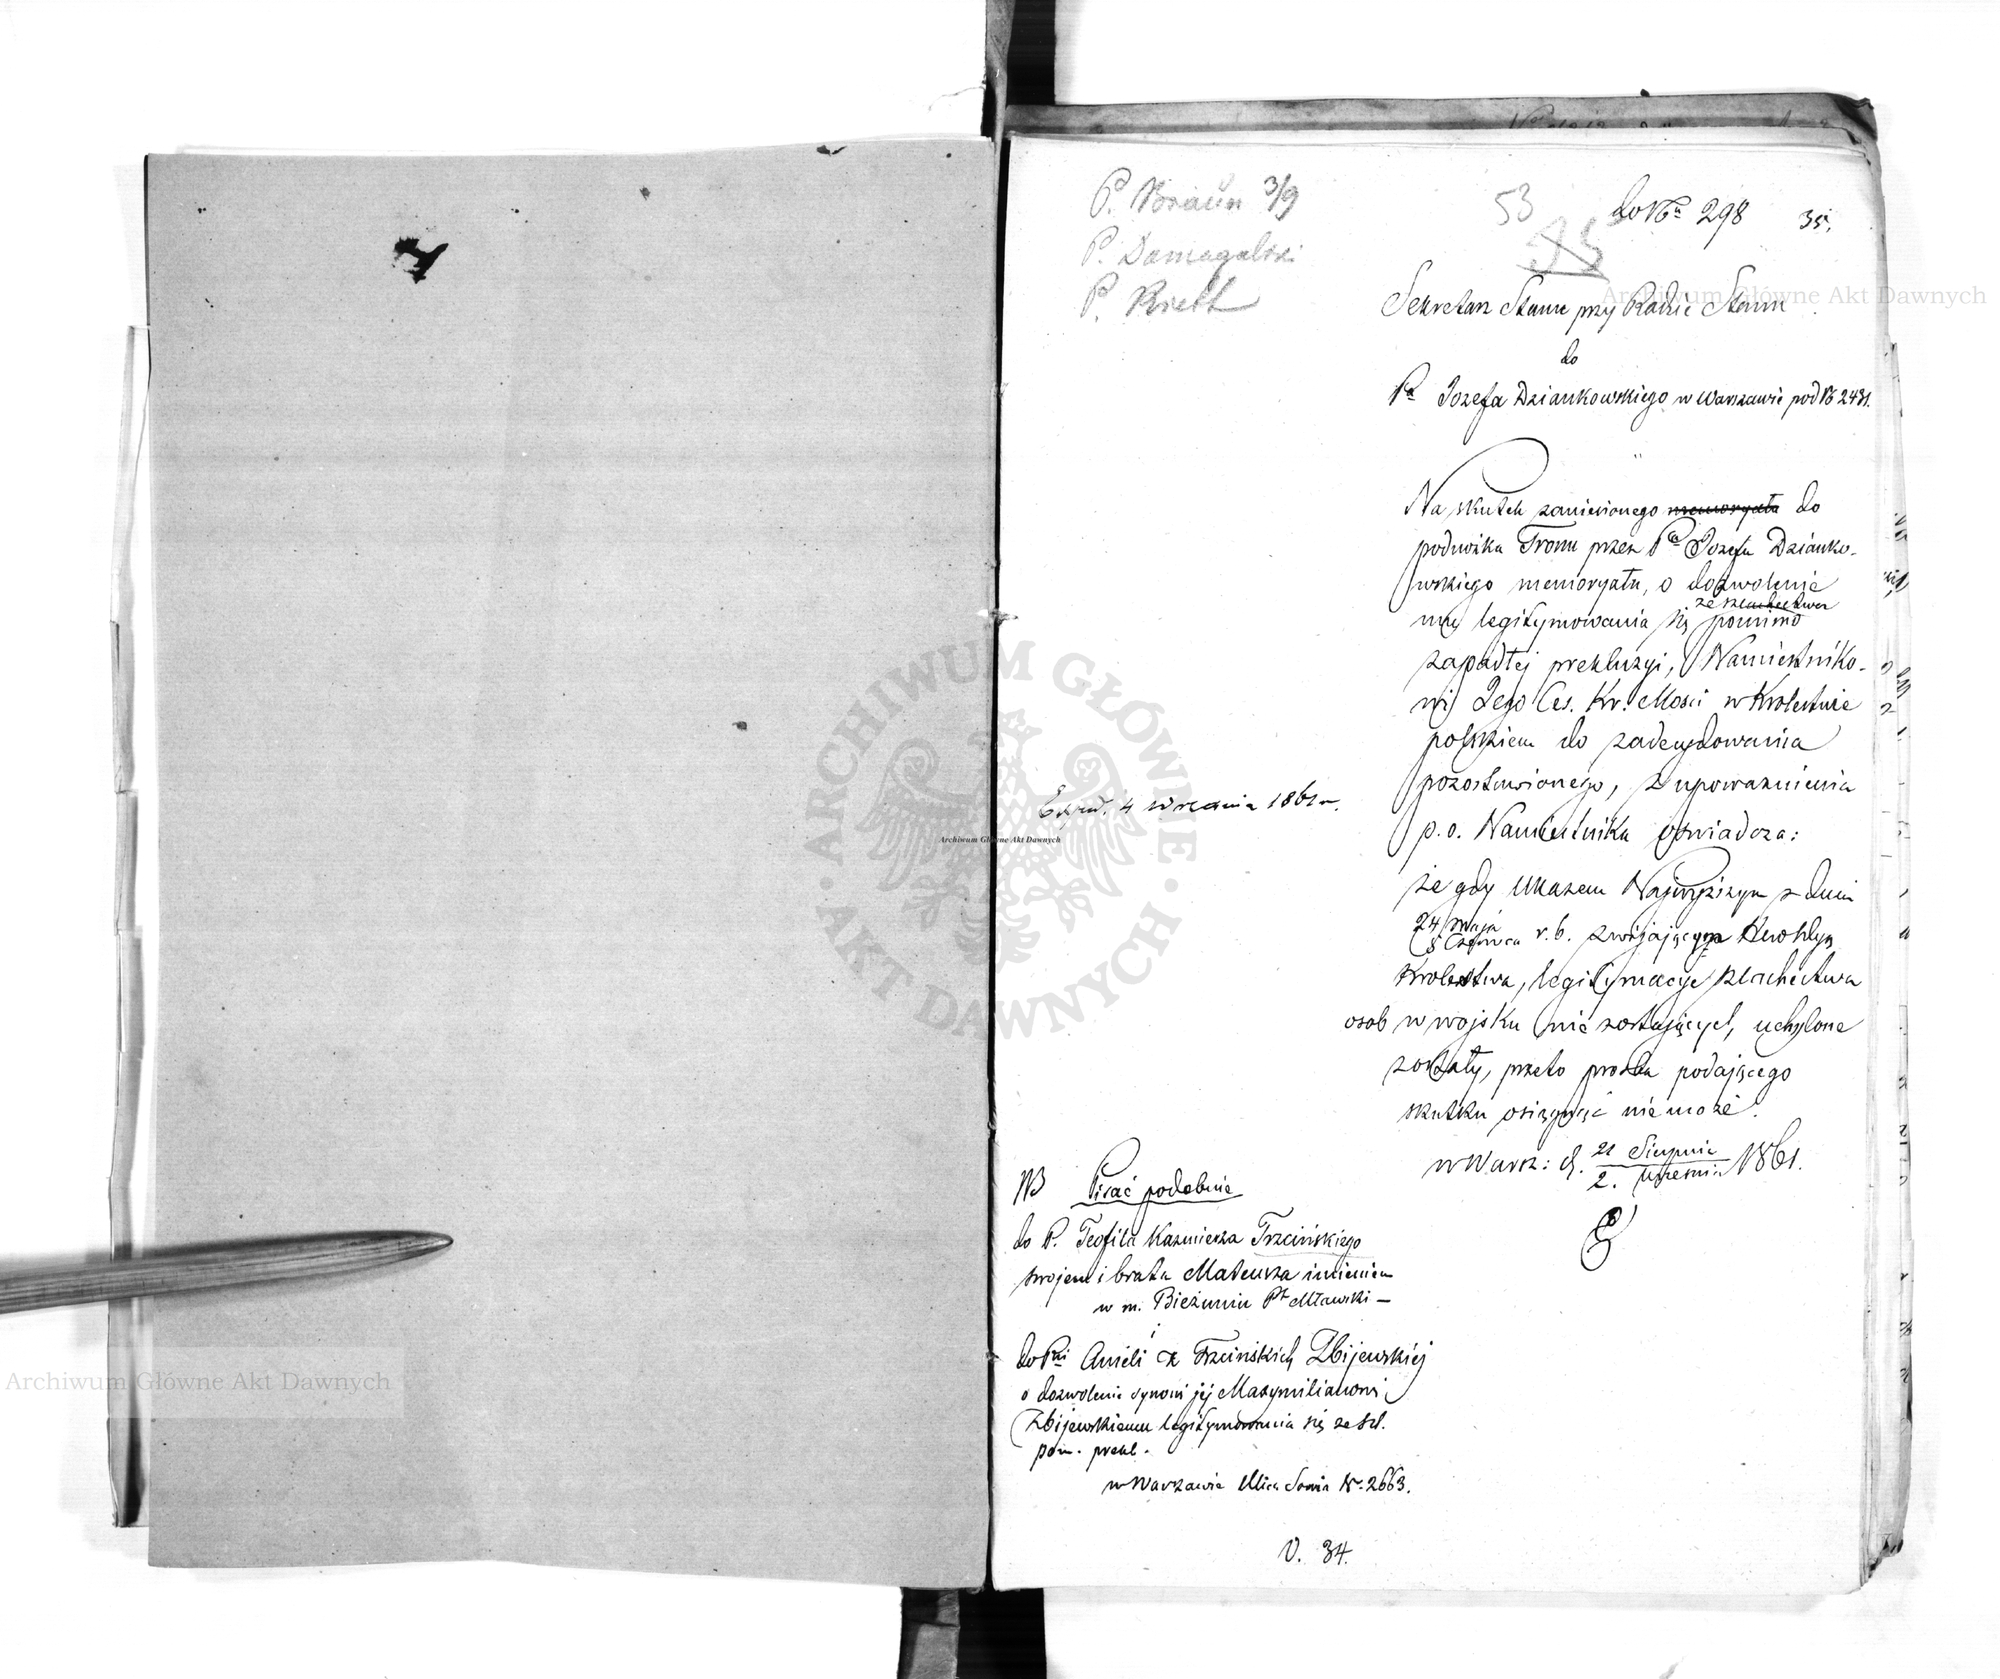 P. Braun 3/9
P. Domagalski
P. Kieth
53
35
do Nru 298
35.
Sekretarz Stanu przy Radzie Stanu
do
Pa Jozefa Dziankowskiego w Warszawie pod N 2481.
Na skutek zaniesionego memoryału do
podnóżka Tronu przez Pa Jozefa Dzianko-
wskiego memoryału, o dozwolenie
mu legitymowania się ze szlachectwa pomimo
zapadłej prekluzyi, Namiestniko-
wi Jego Ces. Kr. Mości w Królestwie
polskiem do zadecydowania
pozostawionego, z upoważnienia
p. o. Namiestnika oświadcza:
że gdy Ukazem Najwyższym z dnia
24 Maja
5 Czerwca r. b. zwijającym Heroldyą
Królestwa, legitymacye szlachectwa
osob w wojsku nie zostających, uchylone
zostały, przeto prośba podającego
skutku osiągnąć nie może.
w Warsz: d. 21 Sierpnia
2. Września 1861.
Exped. 4 Września 1861 r.
NB Pisać podobnie
do P. Teofila Kazmierza Trzcińskiego
swojem i brata Mateusza imieniem
w m. Bieżuniu Pt Mławski —
do Pni Anieli z Trzcińskich Zbijewskiej
o dozwolenie synowi jej Maxymilianowi
Zbijewskiemu legitymowania się ze szl.
pom. prekl.
w Warszawie Ulica N. 2663.
V. 34.
Archiwum Główne Akt Dawnych
Archiwum Główne Akt Dawnych
Archiwum Główne Akt Dawnych
ARCHIWUM GŁÓWNE AKT DAWNYCH